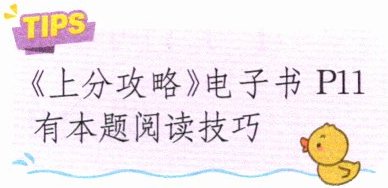 TIPS
《上分攻略》电子书 P11
有本题阅读技巧